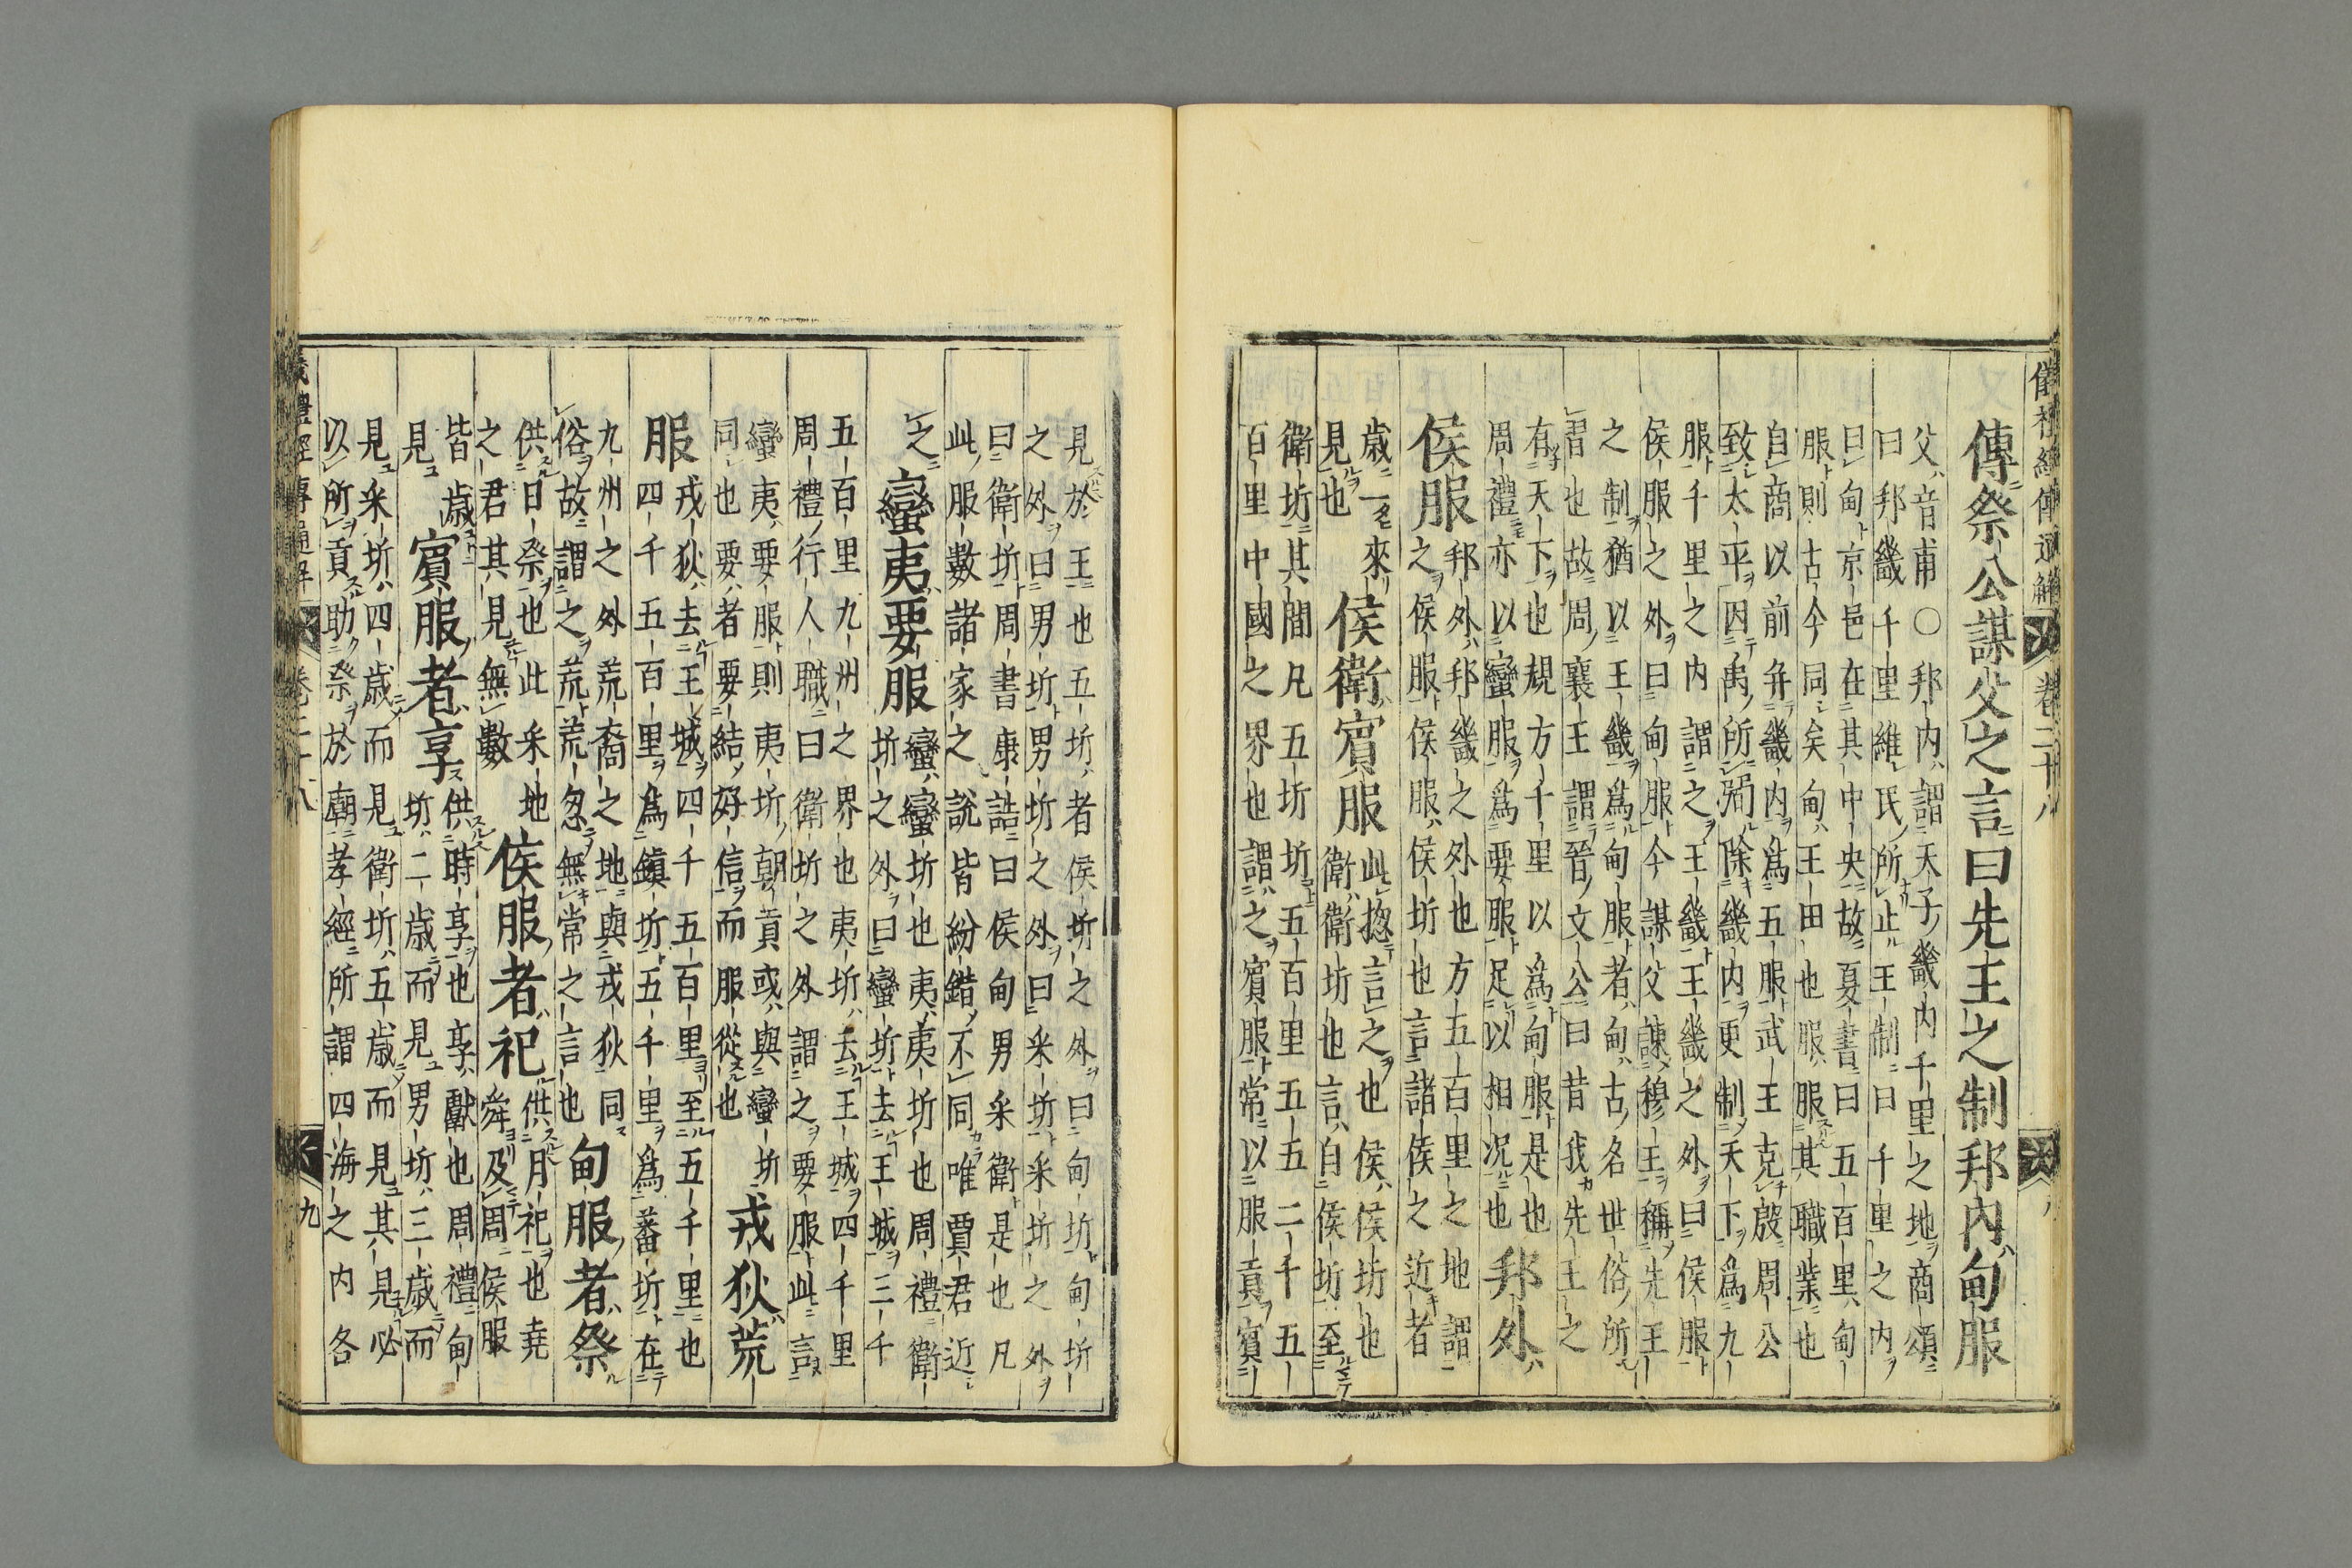 儀禮經傳通解 卷二十八 八
傳祭公謀父之言曰先王之制邦内甸服
父音甫○邦内謂天子畿内千里之地商頌
曰邦畿千里維民所止王制曰千里之内
曰甸京邑在其中央故夏書曰五百里甸
服則古今同矣甸王田也服服其職業也
自商以前并畿内爲五服武王克殷周公
致太平因禹所弼除畿内更制天下爲九
服千里之内謂之王畿王畿之外曰侯服
侯服之外曰甸服今謀父諫穆王稱先王
之制猶以王畿爲甸服者甸古名世俗所
君也故周襄王謂晉文公曰昔我先王之
有天下也規方千里以爲甸服是也
周禮亦以蠻服爲要服足以相況也
邦外
侯服
邦外邦畿之外也方五百里之地謂
之侯服侯服侯圻也言諸侯之近者
歲一來
見也
侯衛賓服
此揔言之也侯侯圻也
衛衛圻也言自侯圻至
衛圻其間凡五圻圻五百里五五二千五
百里中國之界也謂之賓服常以服貢賓
見於王也五圻者侯圻之外曰甸圻甸圻
之外曰男圻男圻之外曰采圻采圻之外
曰衛圻周書康誥曰侯甸男采衛是也凡
此服數諸家之說皆紛錯不同唯賈君近
之
蠻夷要服
蠻蠻圻也夷夷圻也周禮衛
圻之外曰蠻圻去王城三千
五百里九州之界也夷圻去王城四千里
周禮行人職曰衛圻之外謂之要服此言
蠻夷要服則夷圻朝貢或與蠻圻
同也要者要結好信而服從也
戎狄荒
服
戎狄去王城四千五百里至五千里也
四千五百里爲鎮圻五千里爲蕃圻在
九州之外荒裔之地與戎狄同
俗故謂之荒荒忽無常之言也
甸服者祭
供日祭也此采地
之君其見無數
侯服者祀
供月祀也堯
舜及周侯服
皆歲
見
賓服者享
供時享也享獻也周禮甸
圻二歲而見男圻三歲而
見采圻四歲而見衛圻五歲而見其見必
以所貢助祭於廟孝經所謂四海之内各
儀禮經傳通解 卷二十八 九